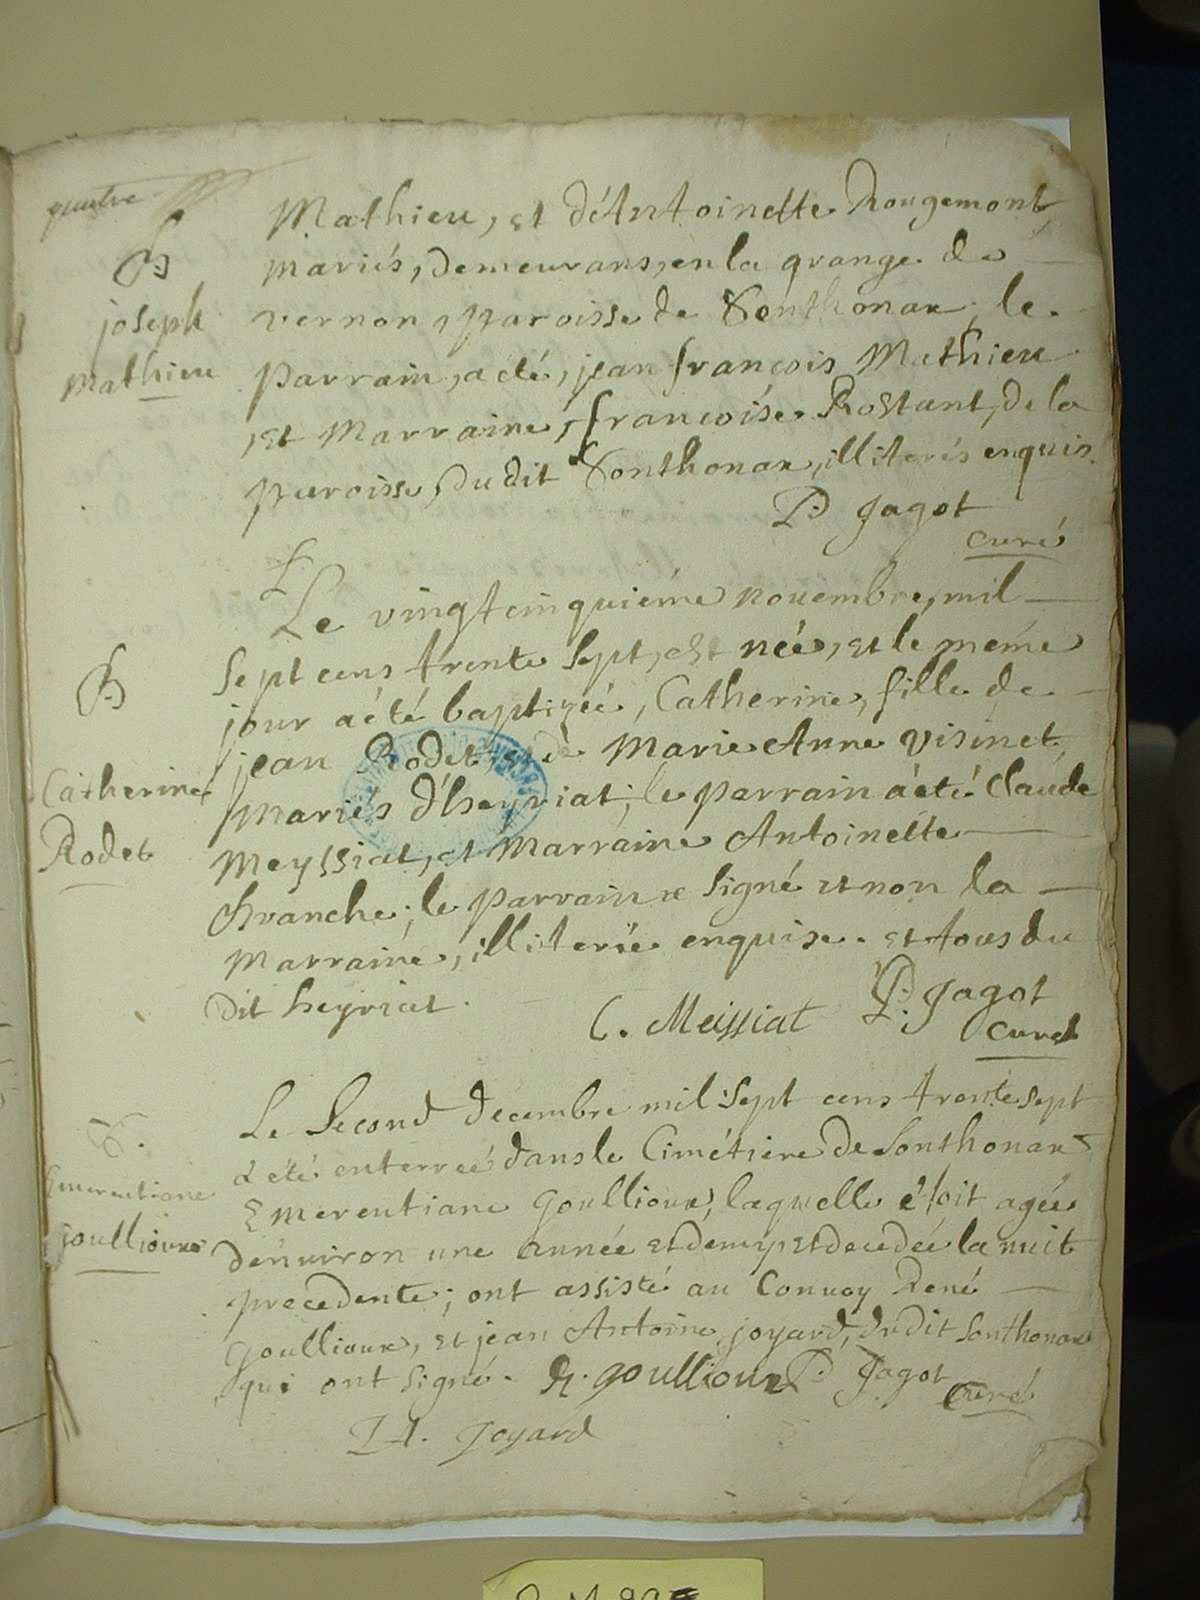 quatre
B
joseph
Mathieu
Mathieu, et d'Antoinette Rougemont,
mariés, demeurans, en la grange de
vernon, paroisse de Sonthonax, le
parrain, a été, jean françois Mathieu
, et Marraine, françoise Rostant, de la
paroisse, du dit Sonthonax, illiterés enquis.
P. Jagot
curé
Le vingtcinquiéme nouembre, mil
B
Catherine
Rodet
sept cens trente sept, est née, et le méme
jour a été baptizée, Catherine, fille de
jean Rodet, et de Marie Anne visinet,
Mariés d'heyriat; le parrain a été Claude
Meyssiat, et Marraine Antoinette
Branche; le parrain a signé et non la
Marraine, illiterïe enquise. et tous du
dit heyriat.
C. Meissiat P. Jagot
curé
S.
Emerentiane
goullioux
Le Second decembre mil sept cens trente sept
a été enterreé dans le Cimétiere de Sonthonax
Emerentiane goullioux, laquelle étoit agée
d'enuiron une année et demy et decedeé la nuit
precedente; ont assisté au Conuoy René
goullioux, et jean Antoine joyard, du dit Sonthonax
qui ont signé. R. goullioux P. Jagot
Curé
J A. Joyard